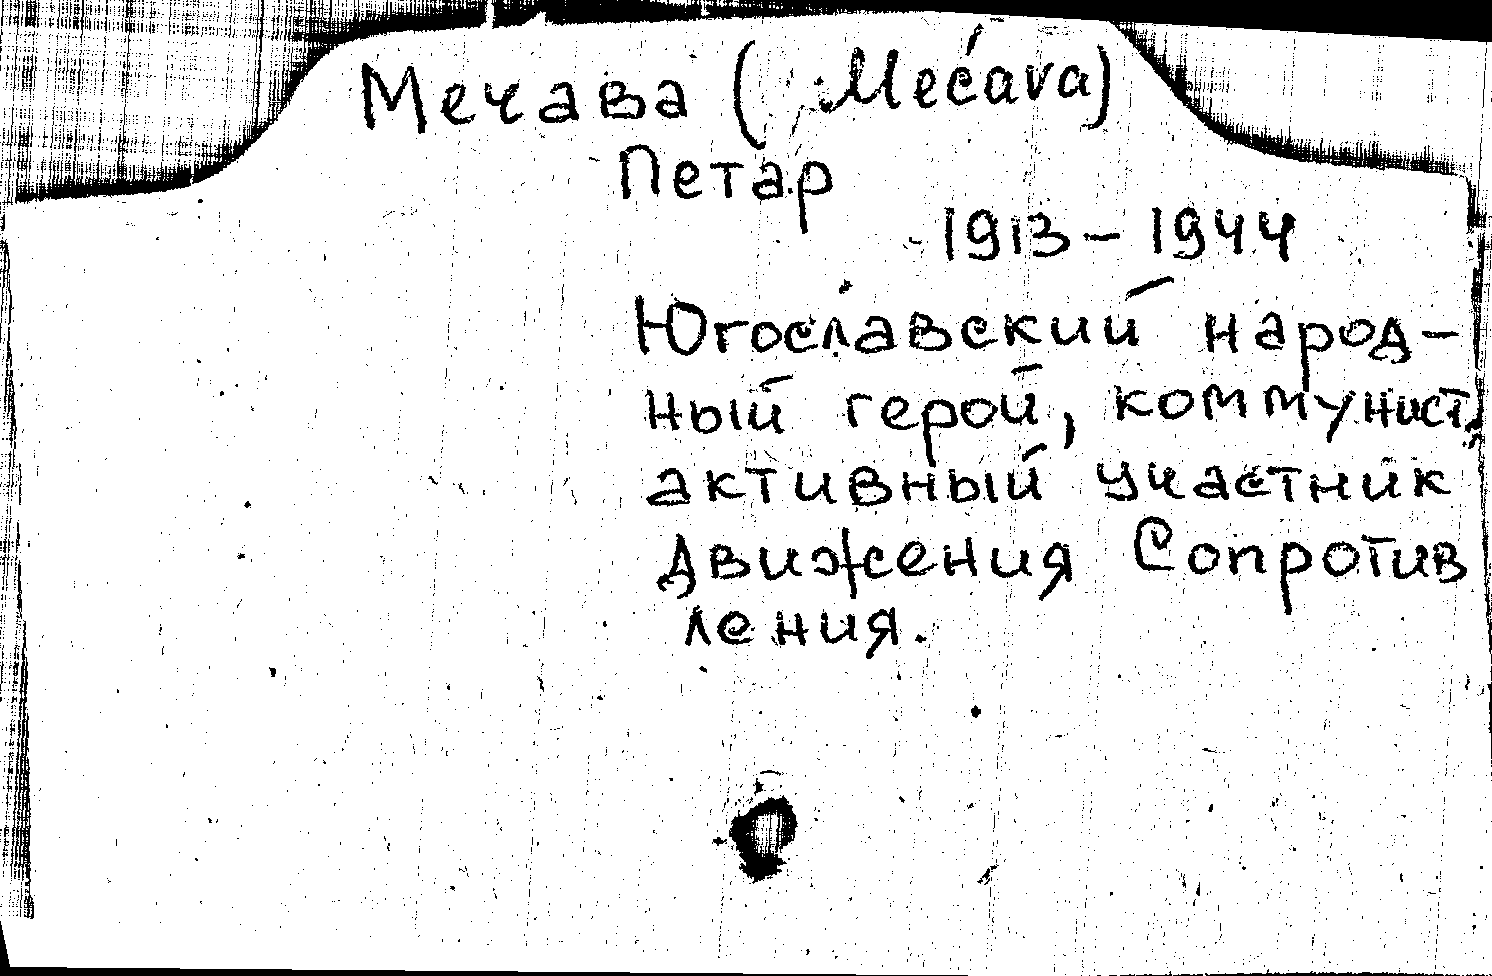 Мечава (Mećava)
Петар
1913 – 1944
Югославский народ-
ный герой, коммунист,
активный участник
Движения Сопротив
ления.